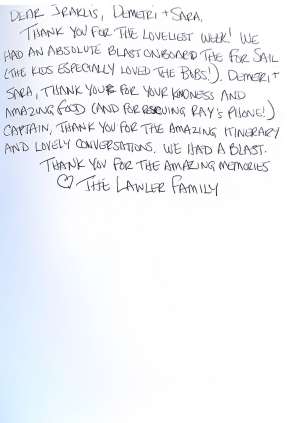 DEAR IRAKLIS, DEMETRI + SARA,
THANK YOU FOR THE LOVELIEST WEEK! WE
HAD AN ABSOLUTE BLAST ONBOARD THE FOR SAIL
(THE KIDS ESPECIALLY LOVED THE BIBS!). DEMETRI +
SARA, THANK YOU FOR YOUR KINDNESS AND
AMAZING FOOD (AND FOR RESCUING RAY'S PHONE!)
CAPTAIN, THANK YOU FOR THE AMAZING ITINERARY
AND LOVELY CONVERSATIONS. WE HAD A BLAST.
THANK YOU FOR THE AMAZING MEMORIES
♡ THE LAWLER FAMILY